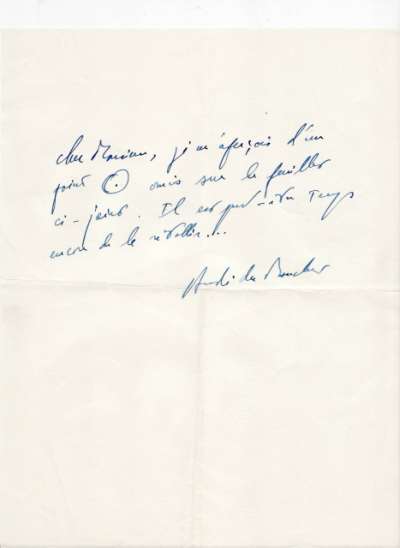 cher Monsieur, je m'aperçois d'un
point ⊙ omis sur le feuillet
ci-joint. Il est peut-être temps
encore de le rétablir...
André du Bouchet